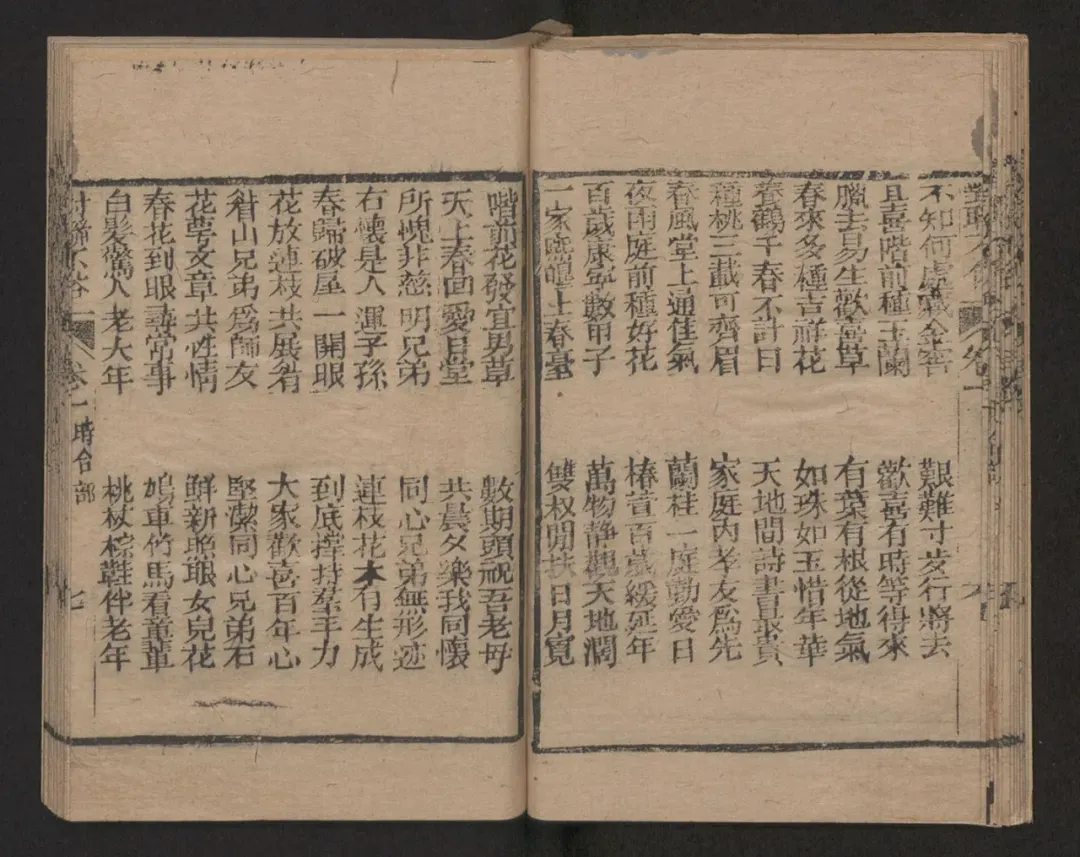 不知何處藏金窖 艱難寸步行將去
且喜階前種玉蘭 歡喜有時等得來
臘去易生歡喜草 有葉有根從地氣
春來多種吉祥花 如珠如玉惜年華
養鶴千春不計日 天地間詩書最貴
種桃三載可齊眉 家庭內孝友爲先
春風堂上通佳氣 蘭桂一庭勤愛日
夜雨庭前種好花 椿萱百歲緩延年
百歲康寧數甲子 萬物静觀天地濶
一家熈皥上春臺 雙杈閒扶日月寬
階前花發宜男草 數期頭祝吾老母
天上春回愛日堂 共晨夕樂我同懷
所愧非慈明兄弟 同心兄弟無形迹
右懷是人渾子孫 連枝花木有生成
春歸破屋一開眼 到底撑持羣手力
花放連枝共展眉 大家歡喜百年心
眉山兄弟爲師友 堅潔同心兄弟石
花萼文章共性情 鮮新照眼女兒花
春花到眼尋常事 鳩車竹馬看童輩
白髮驚人老大年 桃杖棕鞋伴老年
卷一時合部 七